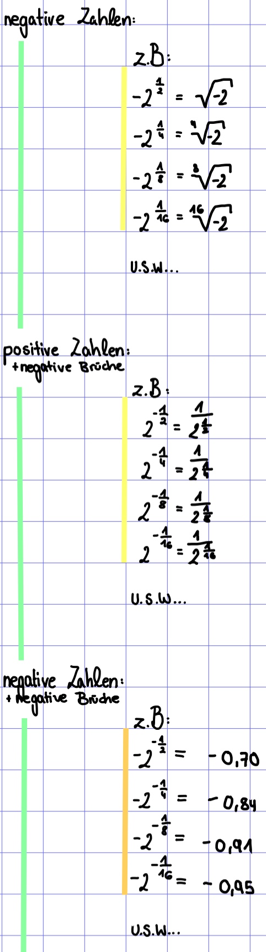 negative Zahlen:
z.B:
-2^{\frac{1}{2}} = \sqrt{-2}
-2^{\frac{1}{4}} = \sqrt[4]{-2}
-2^{\frac{1}{8}} = \sqrt[8]{-2}
-2^{\frac{1}{16}} = \sqrt[16]{-2}
u.s.w...
positive Zahlen:
+negative Brüche
z.B:
2^{-\frac{1}{2}} = \frac{1}{2^{\frac{1}{2}}}
2^{-\frac{1}{4}} = \frac{1}{2^{\frac{1}{4}}}
2^{-\frac{1}{8}} = \frac{1}{2^{\frac{1}{8}}}
2^{-\frac{1}{16}} = \frac{1}{2^{\frac{1}{16}}}
u.s.w...
negative Zahlen:
+ Negative Brüche
z.B:
-2^{-\frac{1}{2}} = -0,70
-2^{-\frac{1}{4}} = -0,84
-2^{-\frac{1}{8}} = -0,91
-2^{-\frac{1}{16}} = -0,95
u.s.w...